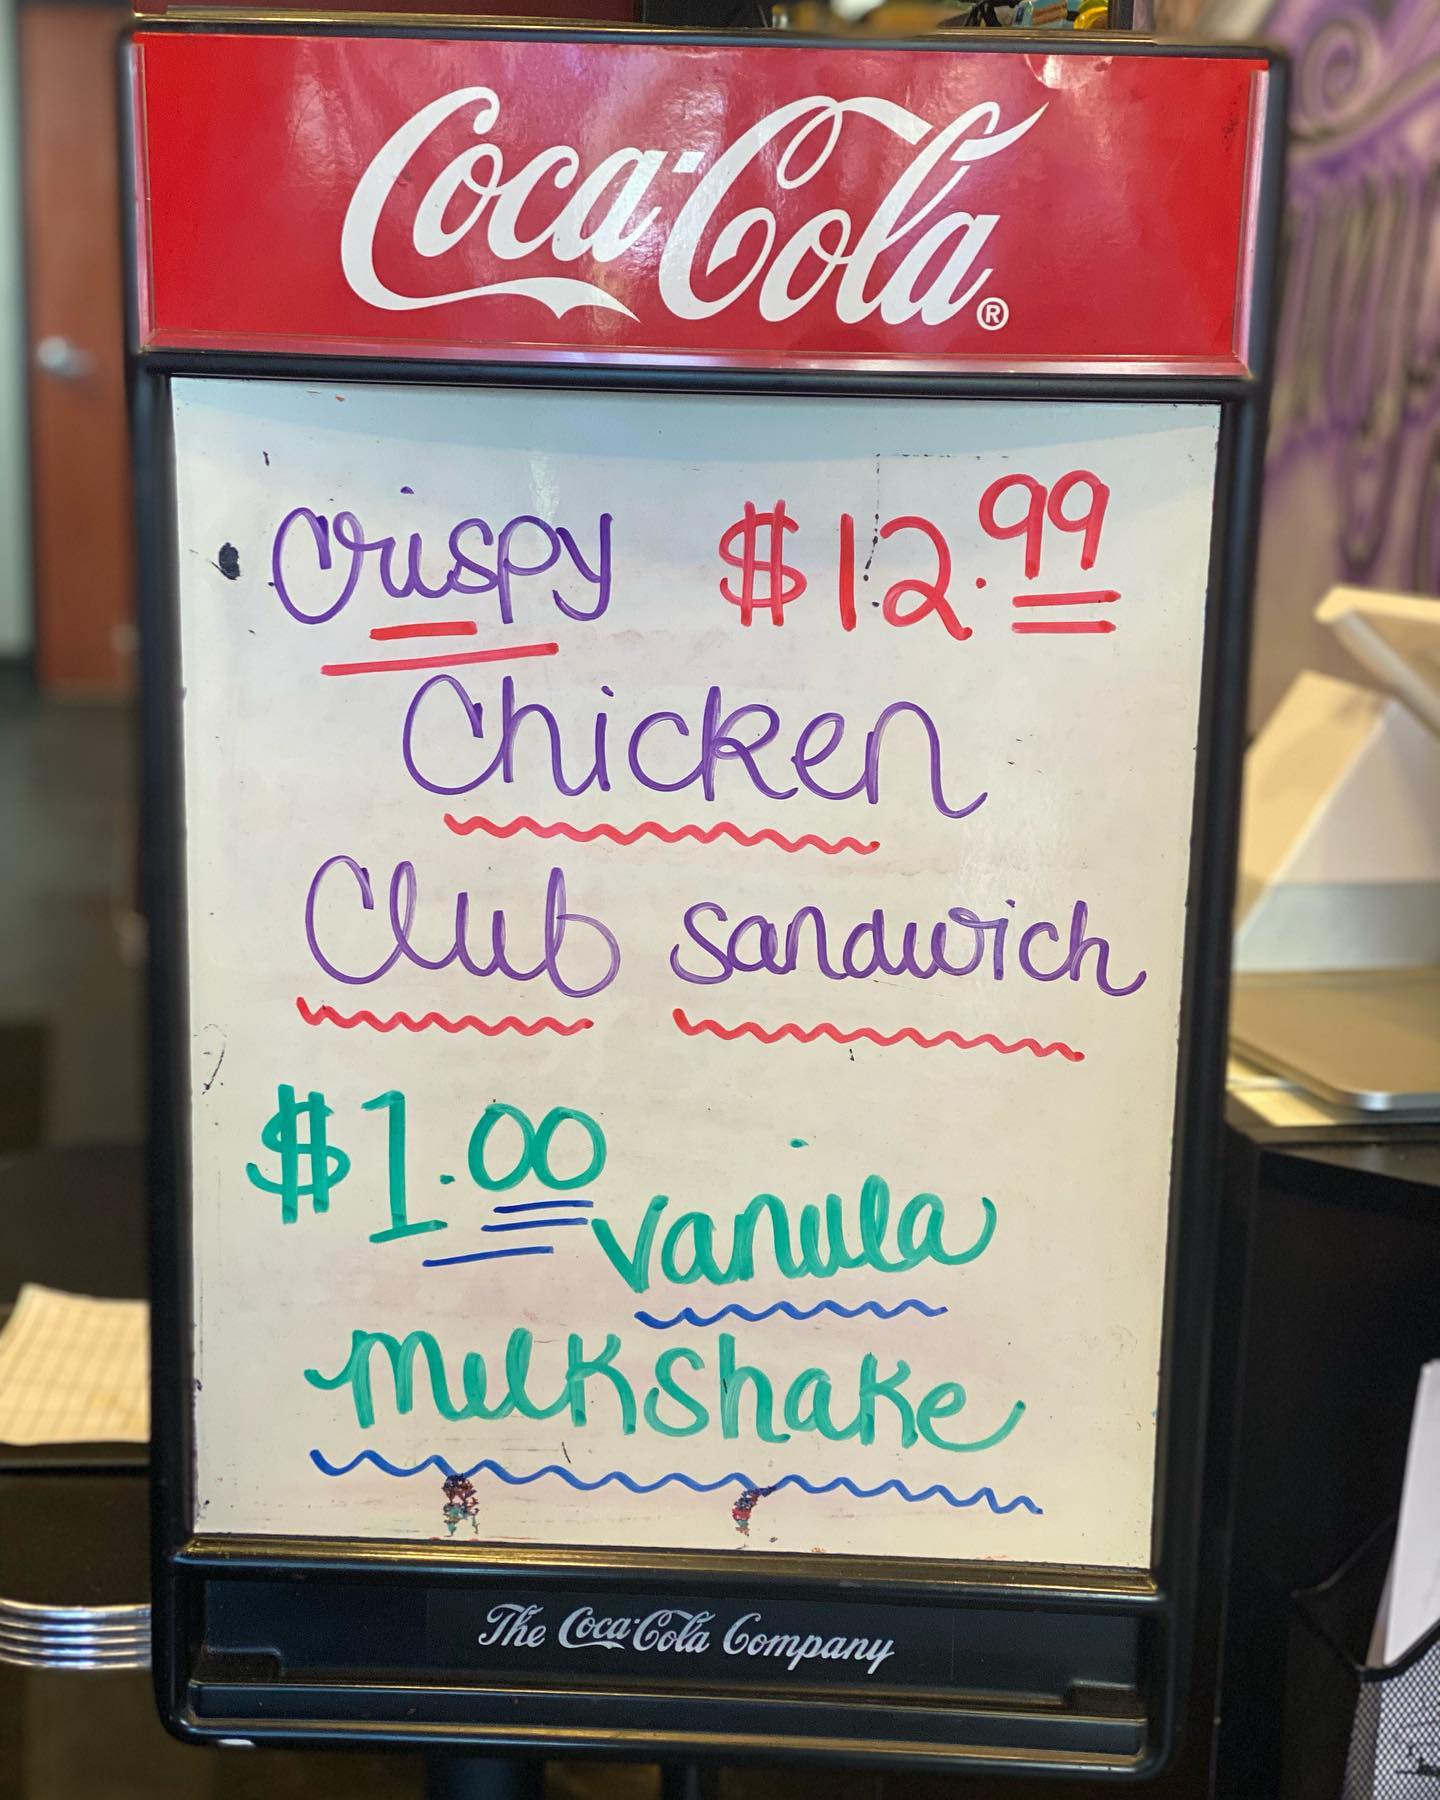 Coca-Cola®
Crispy $12.99
Chicken
Club sandwich
$1.00 vanilla
milkshake
The Coca-Cola Company